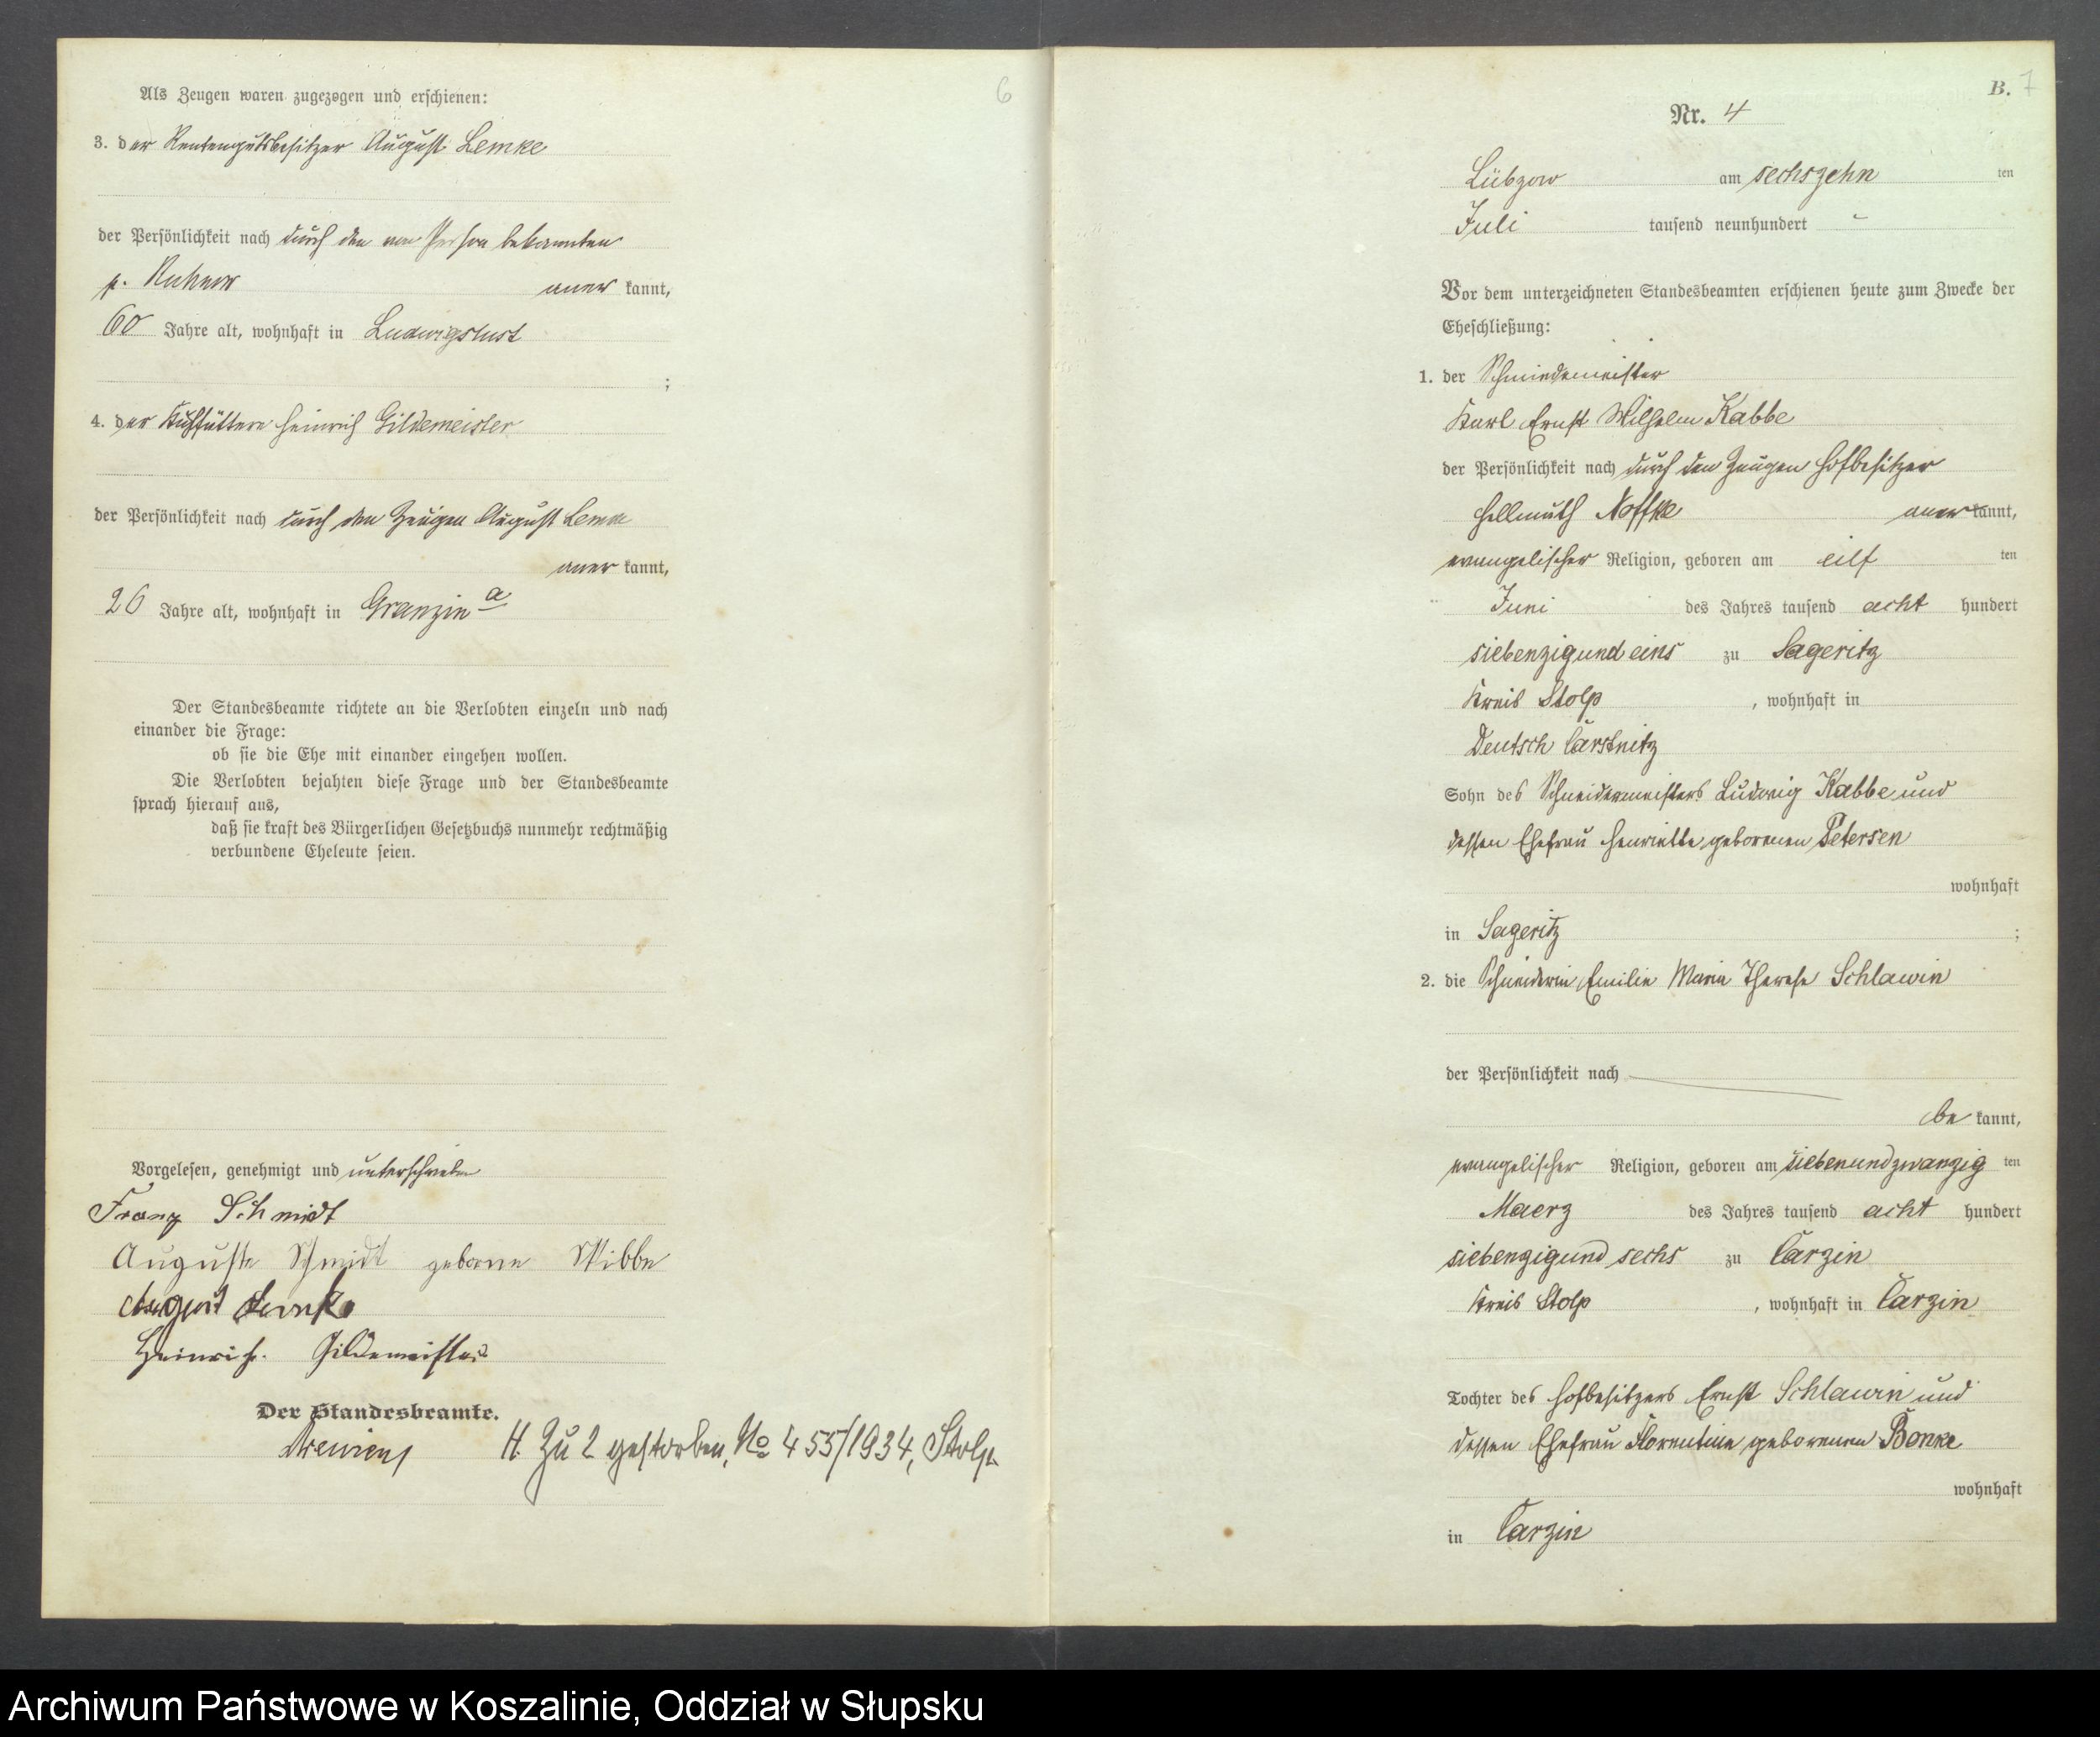 6
Als Zeugen waren zugezogen und erschienen:
3. der Rentengutsbesitzer August Lemke
der Persönlichkeit nach durch den von Person bekannten
p. Ruhnow anerkannt,
60 Jahre alt, wohnhaft in Ludwigslust
;
4. der Kuhfütterer Heinrich Gildemeister
der Persönlichkeit nach durch den Zeugen August Lemke
anerkannt,
26 Jahre alt, wohnhaft in Granzin a
Der Standesbeamte richtete an die Verlobten einzeln und nach
einander die Frage:
ob sie die Ehe mit einander eingehen wollen.
Die Verlobten bejahten diese Frage und der Standesbeamte
sprach hierauf aus,
daß sie kraft des Bürgerlichen Gesetzbuchs nunmehr rechtmäßig
verbundene Eheleute seien.
Vorgelesen, genehmigt und unterschrieben
Franz Schmidt
Auguste Schmidt geborne Stibbe
August Lemke
Heinrich Gildemeister
Der Standesbeamte.
H. Zu 2 gestorben, No 455/1934, Stolp
B. 7
Nr. 4
Lübzow am sechszehn ten
Juli tausend neunhundert
Vor dem unterzeichneten Standesbeamten erschienen heute zum Zwecke der
Eheschließung:
1. der Schmiedemeister
Karl Ernst Wilhelm Kabbe
der Persönlichkeit nach durch den Zeugen Hofbesitzer
Hellmuth Noffke anerkannt,
evangelischer Religion, geboren am eilf ten
Juni des Jahres tausend acht hundert
siebenzigundeins zu Sageritz
Kreis Stolp , wohnhaft in
Deutsch Carstnitz
Sohn des Schneidermeisters Ludwig Kabbe und
dessen Ehefrau Henriette geborenen Petersen
wohnhaft
in Sageritz ;
2. die Schneiderin Emilie Maria Therese Schlawin
der Persönlichkeit nach
be kannt,
evangelischer Religion, geboren am siebenundzwanzig ten
Maerz des Jahres tausend acht hundert
siebenzigund sechs zu Carzin
Kreis Stolp , wohnhaft in Carzin
Tochter des Hofbesitzers Ernst Schlawin und
dessen Ehefrau Florentine geborenen Bonke
wohnhaft
in Carzin
Archiwum Państwowe w Koszalinie, Oddział w Słupsku